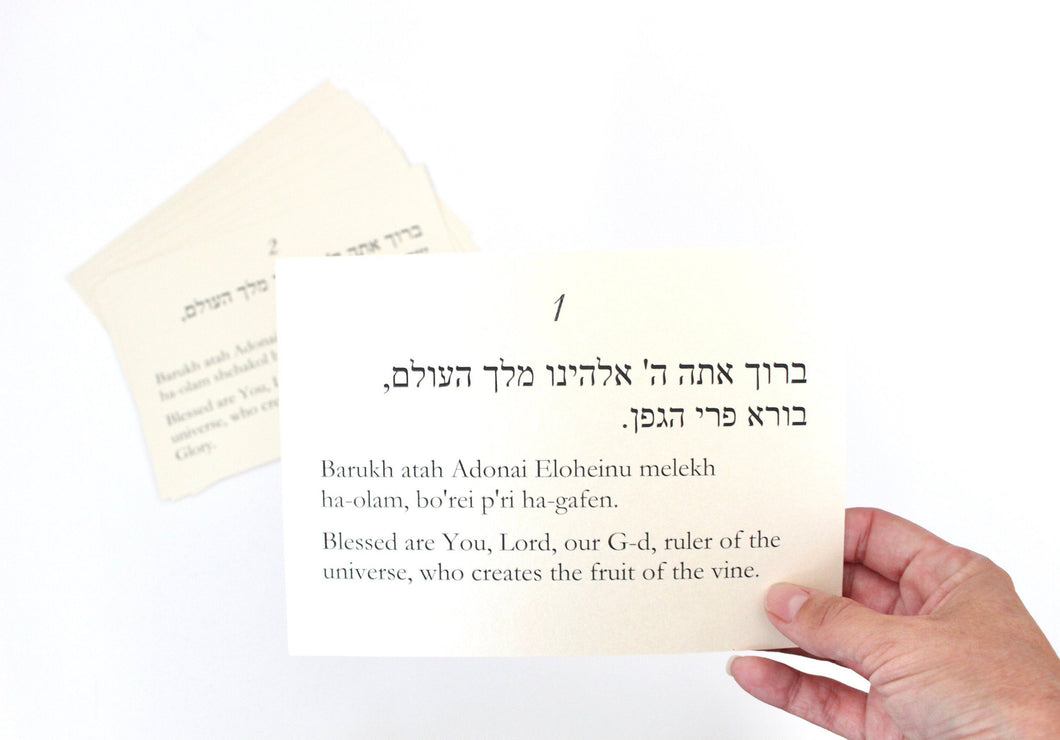 1
ברוך אתה ה' אלהינו מלך העולם,
בורא פרי הגפן.
Barukh atah Adonai Eloheinu melekh
ha-olam, bo'rei p'ri ha-gafen.
Blessed are You, Lord, our G-d, ruler of the
universe, who creates the fruit of the vine.
2
ברוך אתה ה'
מלך העולם,
Barukh atah Adonai
ha-olam shehakol
Blessed are You,
universe, who
Glory.